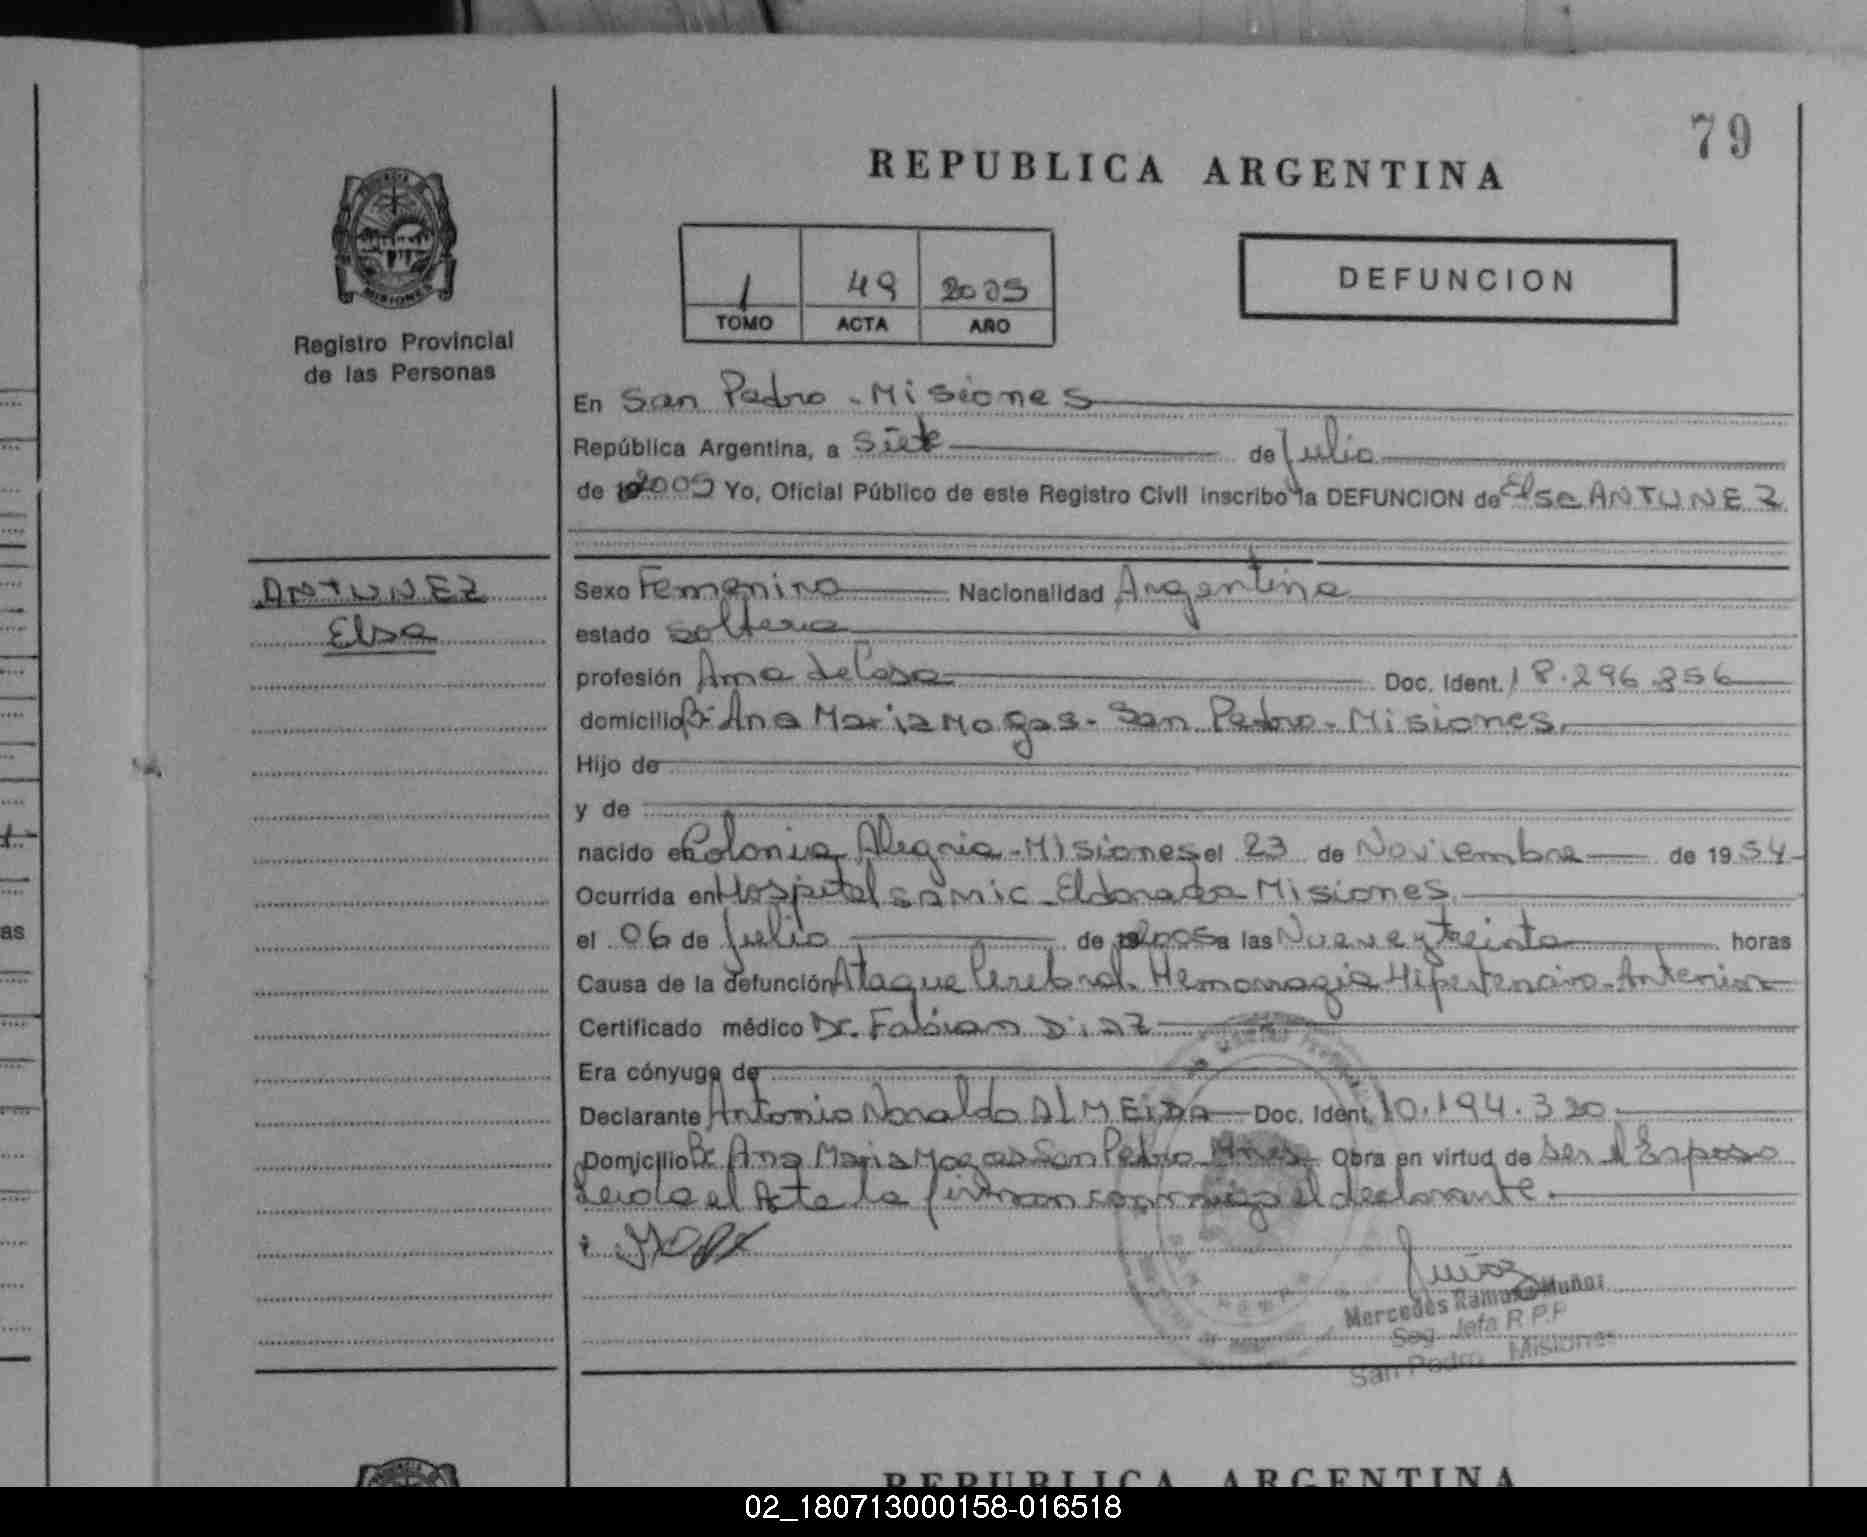 79
REPUBLICA ARGENTINA
1 49 2005
TOMO ACTA AÑO
DEFUNCION
MISIONES
Registro Provincial
de las Personas
En San Pedro - Misiones
República Argentina, a Siete de Julio
de 2005 Yo, Oficial Público de este Registro Civil inscribo la DEFUNCION de Elsa ANTUNEZ
ANTUNEZ
Elsa
Sexo Femenino Nacionalidad Argentina
estado Soltera
profesión Ama de Casa Doc. Ident. 18.296.856
domicilio Bº Ana Maria Mogas - San Pedro - Misiones.
Hijo de
y de
nacido en Colonia Alegria - Misiones el 23 de Noviembre de 1954
Ocurrida en Hospital SAMIC - Eldorado Misiones.
el 06 de Julio de 2005 a las Nueve y treinta horas
Causa de la defunción Ataque Cerebral. Hemorragia Hipertensiva. Anterior
Certificado médico Dr. Fabian DiAZ
Era cónyuge de
Declarante Antonio Noraldo ALMEiDA Doc. Ident. 10.194.320
Domicilio Bº Ana Maria Mogas San Pedro Mnes Obra en virtud de ser el Esposo
Leida el Acta la firman conmigo el declarante.
Mercedes Ramona Muñoz
Seg. Jefa R.P.P
San Pedro Misiones
REPUBLICA ARGENTINA
02_180713000158-016518